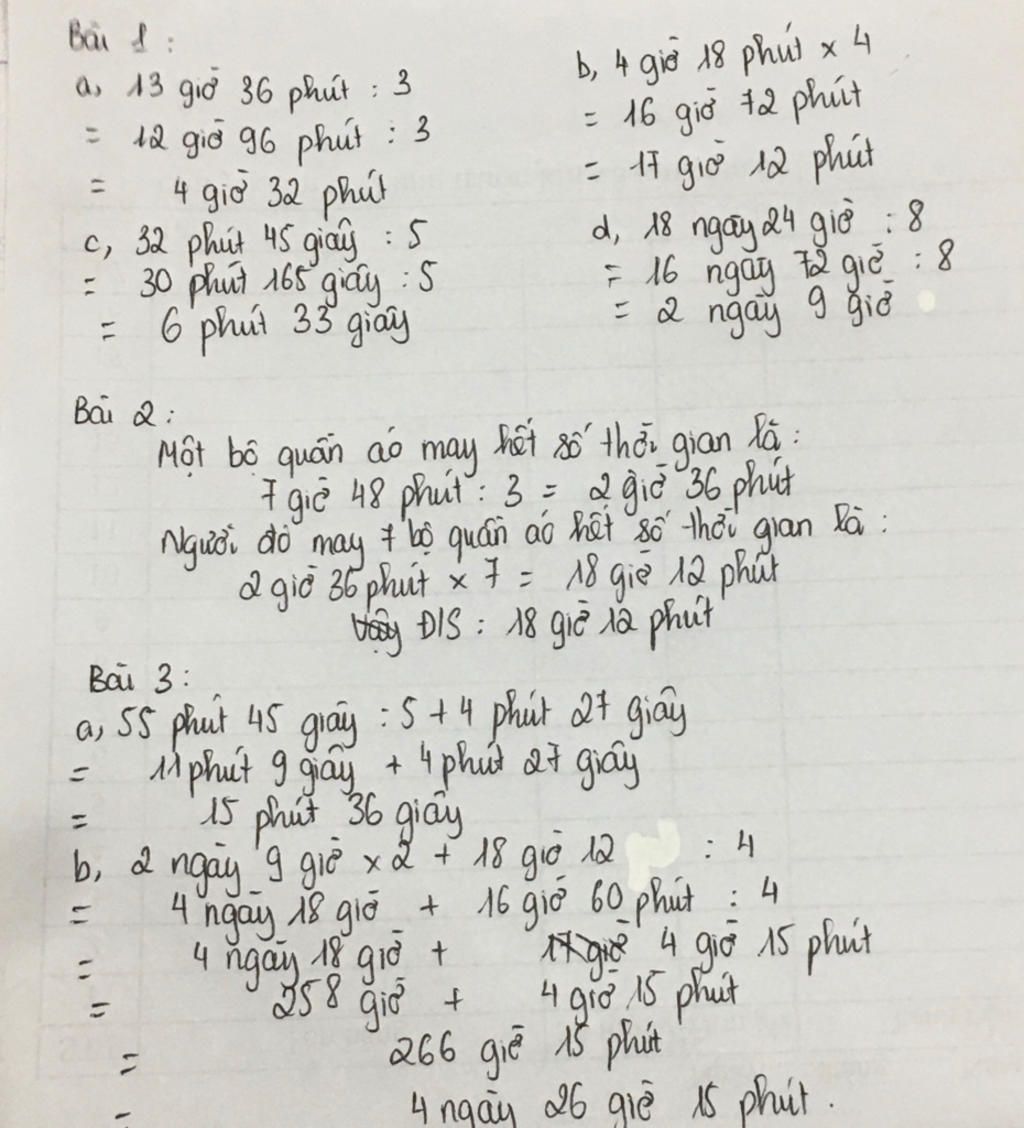 Bài 1 :
a, 13 giờ 36 phút : 3
= 12 giờ 96 phút : 3
= 4 giờ 32 phút
b, 4 giờ 18 phút x 4
= 16 giờ 72 phút
= 17 giờ 12 phút
c, 32 phút 45 giây : 5
= 30 phút 165 giây : 5
= 6 phút 33 giây
d, 18 ngày 24 giờ : 8
= 16 ngày 72 giờ : 8
= 2 ngày 9 giờ
Bài 2 :
Một bộ quần áo may hết số thời gian là :
7 giờ 48 phút : 3 = 2 giờ 36 phút
Người đó may 7 bộ quần áo hết số thời gian là :
2 giờ 36 phút x 7 = 18 giờ 12 phút
Vậy Đ/S : 18 giờ 12 phút
Bài 3 :
a, 55 phút 45 giây : 5 + 4 phút 27 giây
= 11 phút 9 giây + 4 phút 27 giây
= 15 phút 36 giây
b, 2 ngày 9 giờ x 2 + 18 giờ 12 : 4
= 4 ngày 18 giờ + 16 giờ 60 phút : 4
= 4 ngày 18 giờ + 17 giờ 4 giờ 15 phút
= 258 giờ + 4 giờ 15 phút
= 266 giờ 15 phút
= 4 ngày 26 giờ 15 phút .